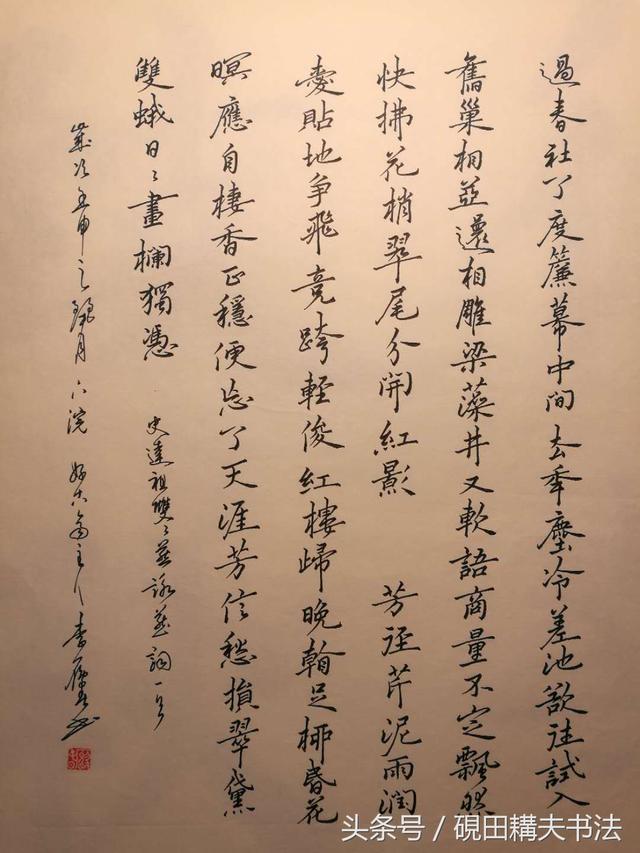 過春社了度簾幕中間去秊塵冷差池欲住試入
舊巢相並還相雕梁藻井又軟語商量不定飄然
快拂花梢翠尾分開紅影 芳徑芹泥雨潤
愛貼地爭飛競誇輕俊紅樓歸晚看足柳昏花
暝應自棲香正穩便忘了天涯芳信愁損翠黛
雙蛾日〻畫欄獨憑 史達祖雙〻燕詠燕詞一首
歲次壬申之月 浣 好古齋主人李
头条号/硯田耩夫书法